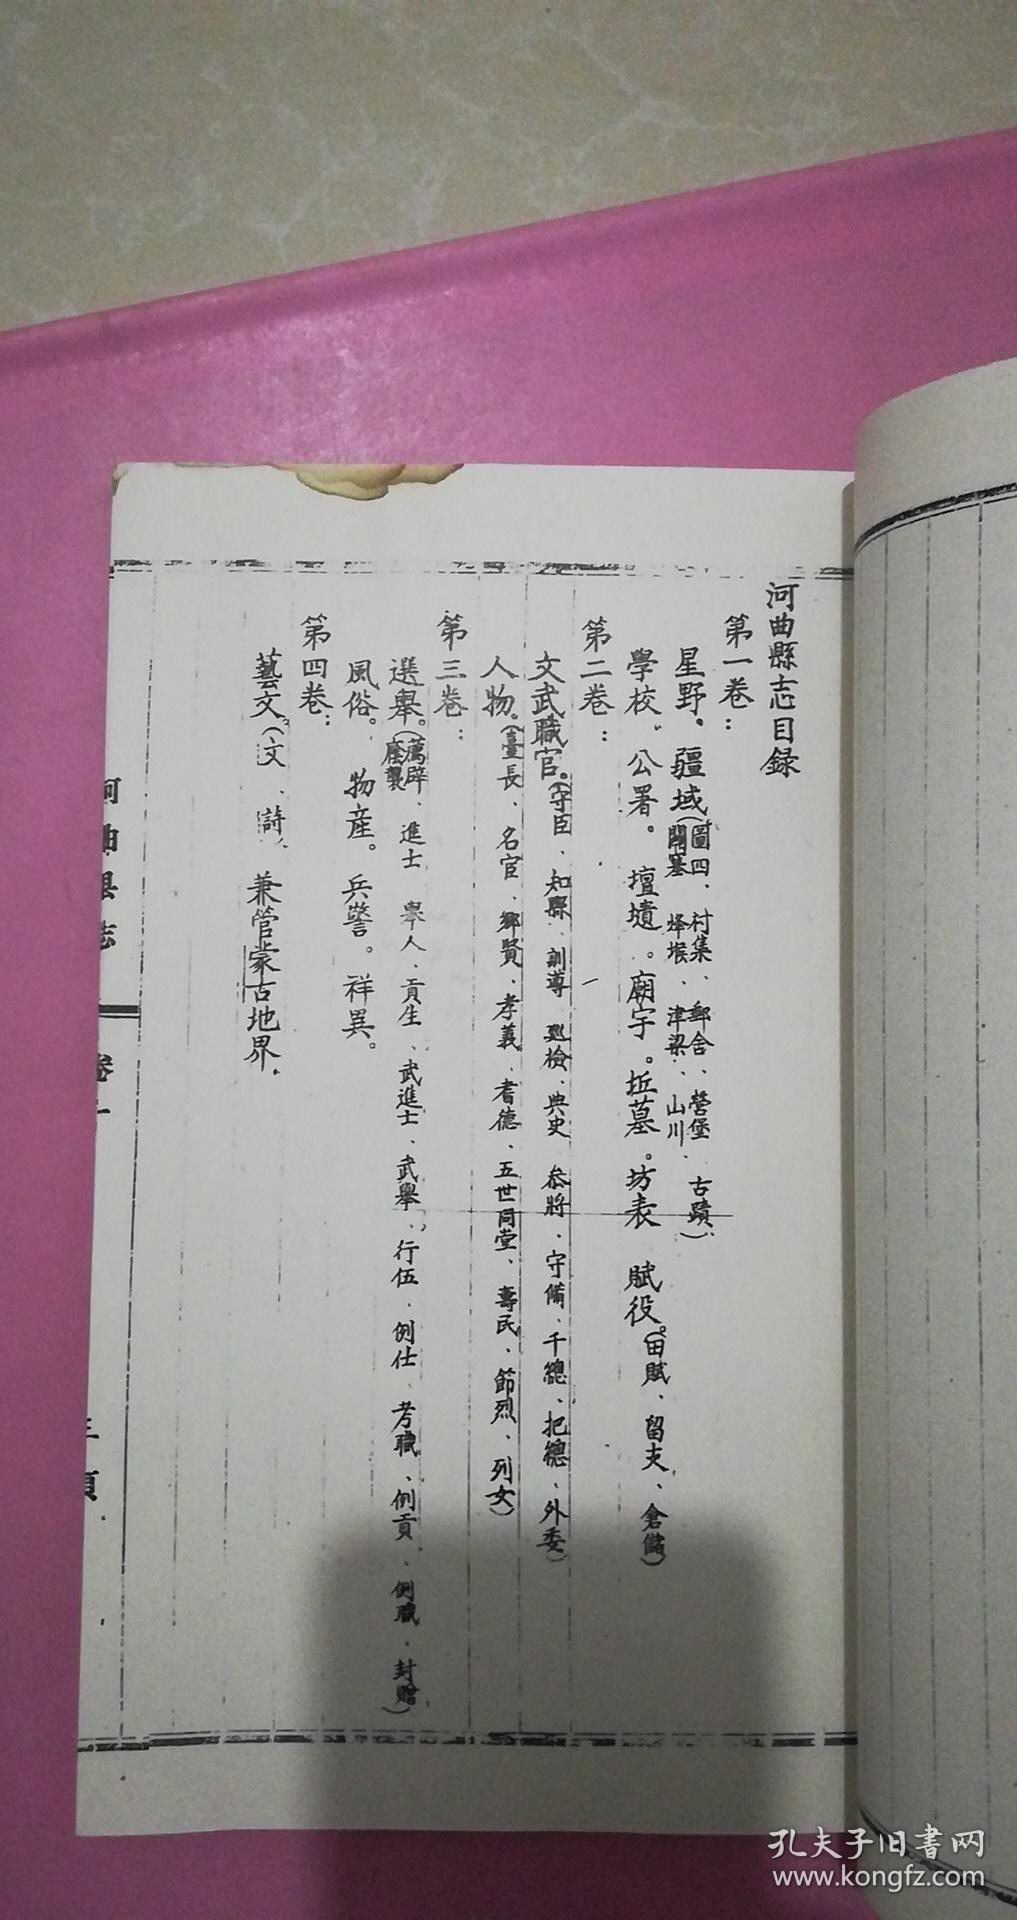 河曲縣志目録
第一卷：
星野。疆域（圖四、村集、郵舍、營堡、古蹟）
關塞、烽堠、津梁、山川
學校、公署。壇壝。廟宇。坵墓。坊表 賦役。（田賦、留支、倉儲）
第二卷：
文武職官。（守臣、知縣、訓導 巡檢、典史、叅將、守備、千總、把總、外委）
人物。（臺長、名宦、鄉賢、孝義、耆德、五世同堂、壽民、節烈、列女）
第三卷：
選舉。（薦辟、進士 舉人、貢生、武進士、武舉、行伍、例仕、考職、例貢、例職、封贈）
廕襲
風俗。物産。兵警。祥異。
第四卷：
藝文（文、詩、兼管蒙古地界.
河曲县志
卷一
三頁
孔夫子旧書网
www.kongfz.com